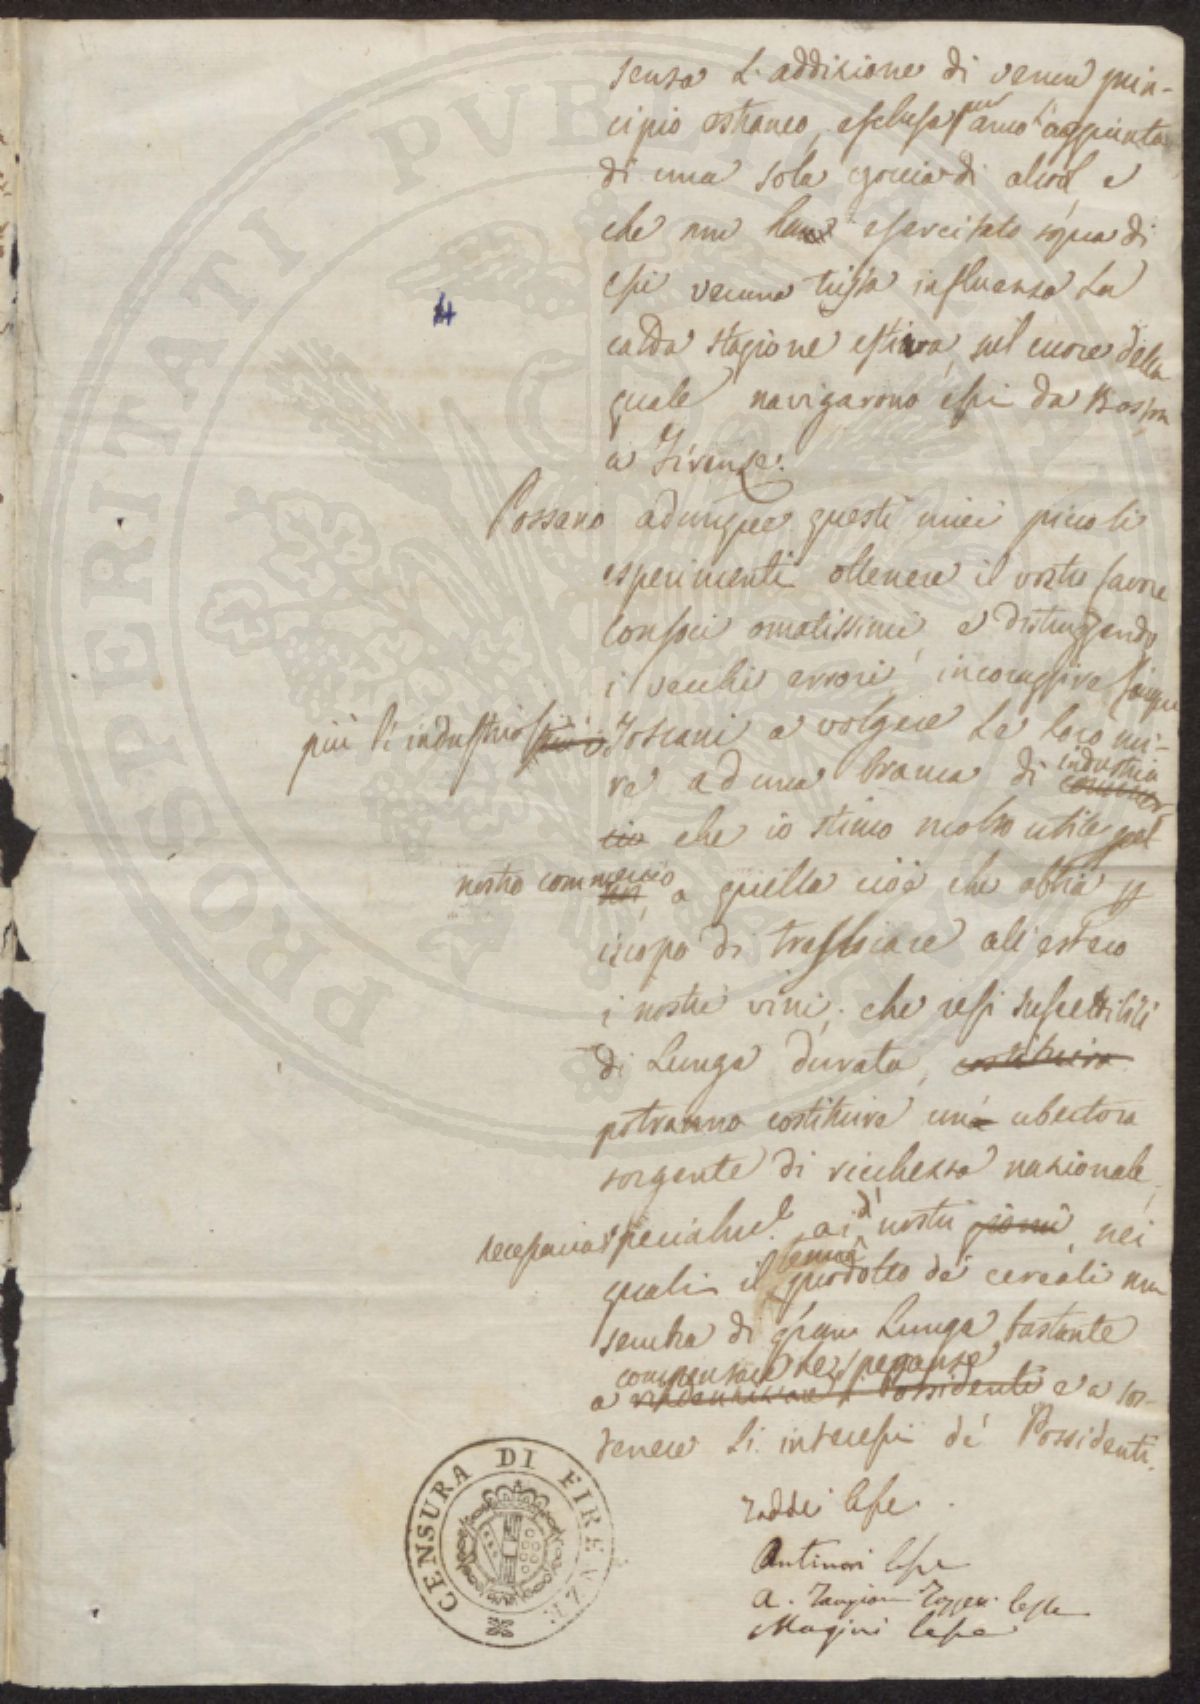 senza l'addizione di verun prin-
cipio estraneo, esclusa per anco l'aggiunta
di una sola goccia di alcol, e
che non han esercitato sopra di
essi veruna trista influenza la
calda stagione estiva, sul cuore della
quale navigarono essi da Boston
a Firenze.
Possano adunque questi miei piccoli
esperimenti ottenere il vostro favore
Consoci ornatissimi, e distruggendo
i vecchi errori, incoraggire
più l'industriosi Toscani a volgere le loro mi-
re ad una branca di industria commer
cio che io stimo molto utile pel
nostro commercio, a quella cioè che abbia p
iscopo di trafficare all'estero
i nostri vini, che resi suscettibili
di lunga durata, costituira
potranno costituire una ubertosa
sorgente di ricchezza nazionale,
necessaria specialme. ai dì nostri giorni, nei
quali il tenue prodotto dei cereali non
sembra di gran lunga bastante
compensare le speranze
a i Possidenti e a sos-
tenere li interessi dé Possidenti.
Taddei lesse.
Antinori lesse
A. Targioni Tozzetti lesse
Magini lesse
CENSURA DI FIRENZE
PROSPERITATI PVBLICAE AVGENDAE